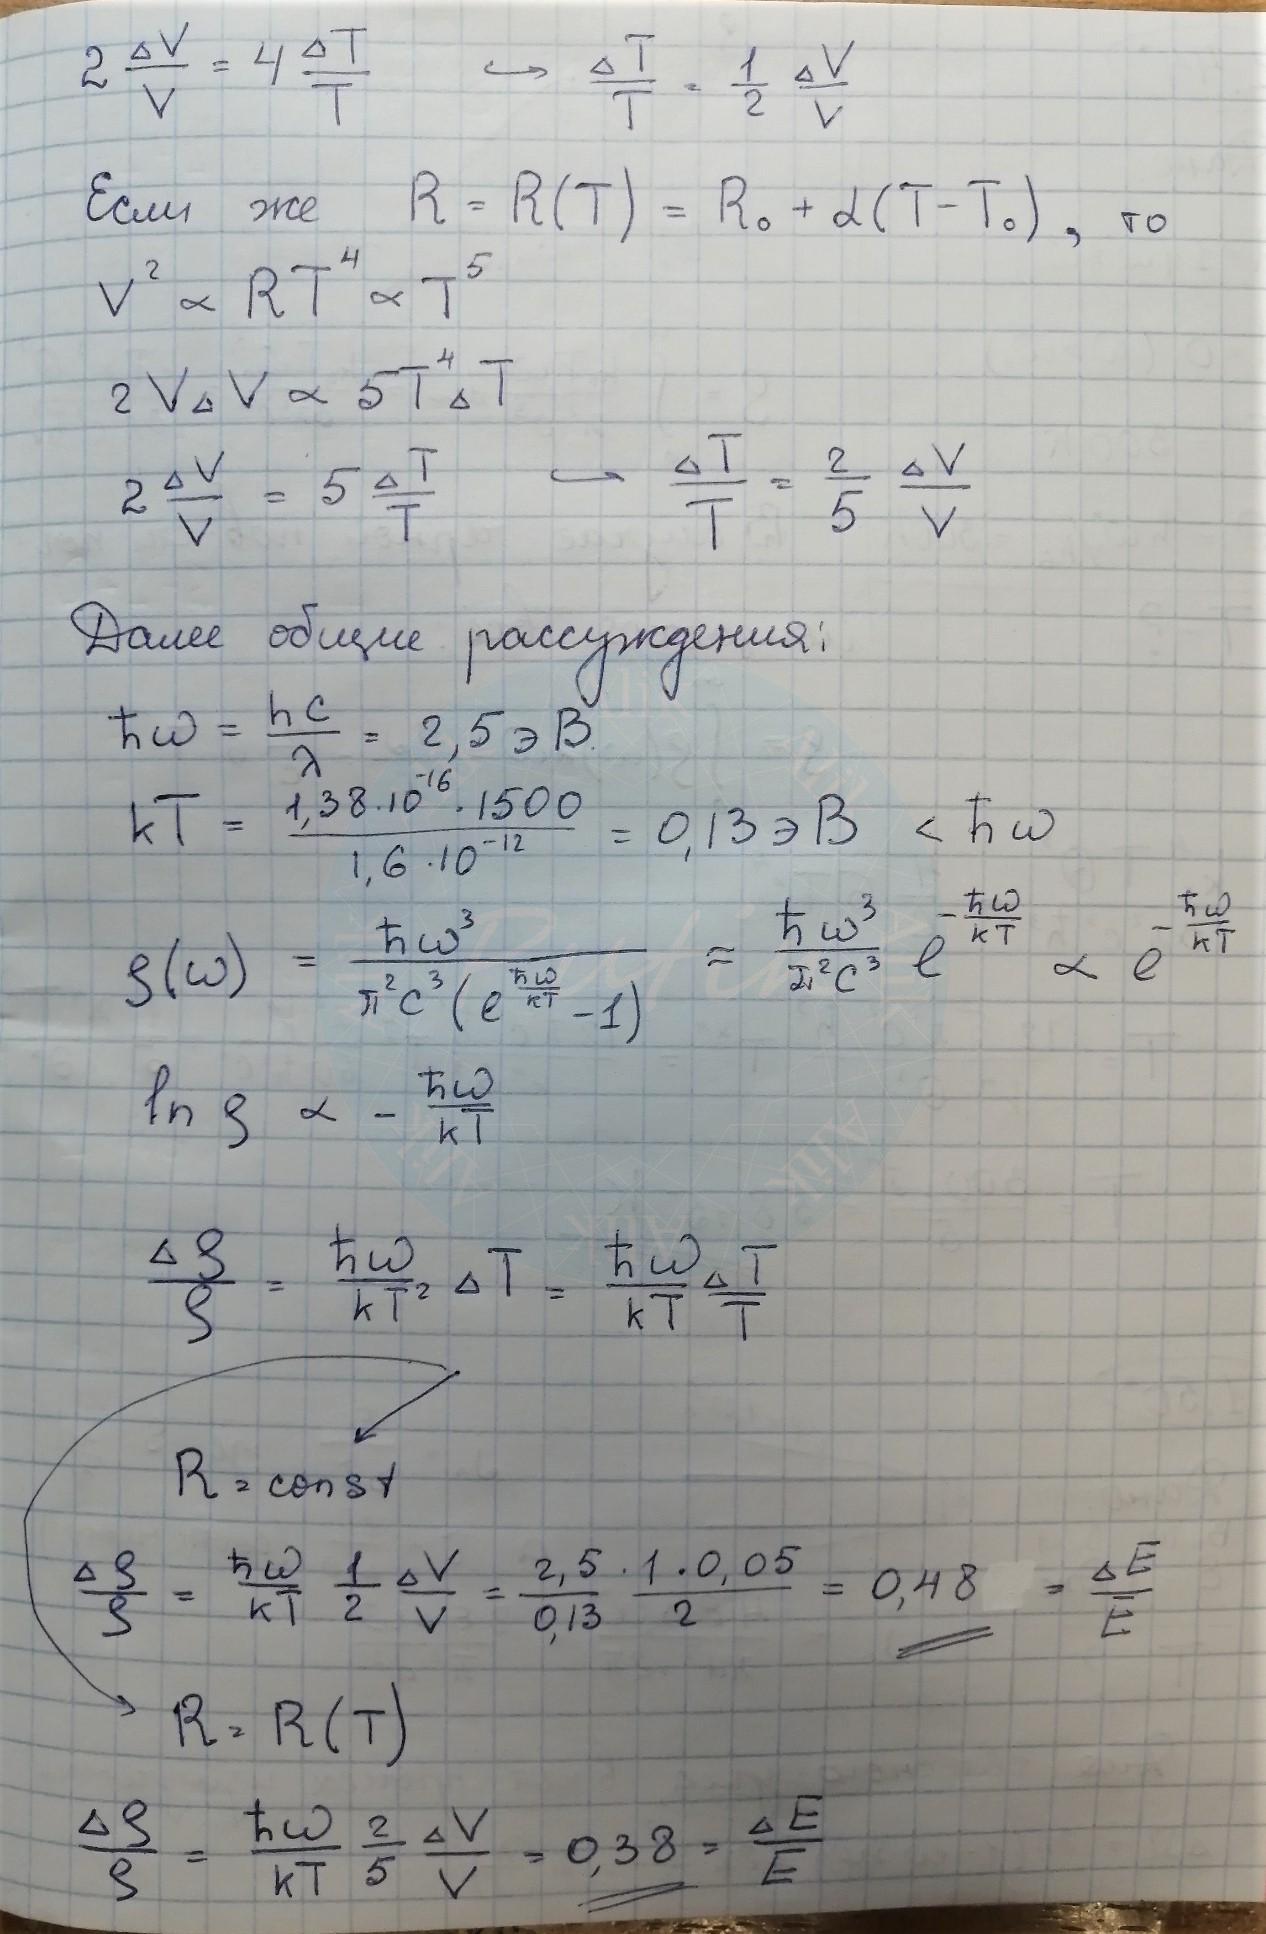 2 ΔV/V = 4 ΔT/T ↪ ΔT/T = 1/2 ΔV/V
Если же R = R(T) = R₀ + α(T-T₀), то
V² ∝ RT⁴ ∝ T⁵
2VΔV ∝ 5T⁴ΔT
2 ΔV/V = 5 ΔT/T ↪ ΔT/T = 2/5 ΔV/V
Далее общие рассуждения:
ħω = hc/λ = 2,5 эВ.
kT = 1,38·10⁻¹⁶·1500/1,6·10⁻¹² = 0,13 эВ < ħω
ρ(ω) = ħω³/π²c³(e^(ħω/kT) - 1) ≈ ħω³/π²c³ e^(-ħω/kT) ∝ e^(-ħω/kT)
ln ρ ∝ - ħω/kT
Δρ/ρ = ħω/kT² ΔT = ħω/kT ΔT/T
R = const
Δρ/ρ = ħω/kT 1/2 ΔV/V = 2,5/0,13 · 1·0,05/2 = 0,48 = ΔE/E
R = R(T)
Δρ/ρ = ħω/kT 2/5 ΔV/V = 0,38 = ΔE/E
Alik
Alik
Alik
Alik
Alik